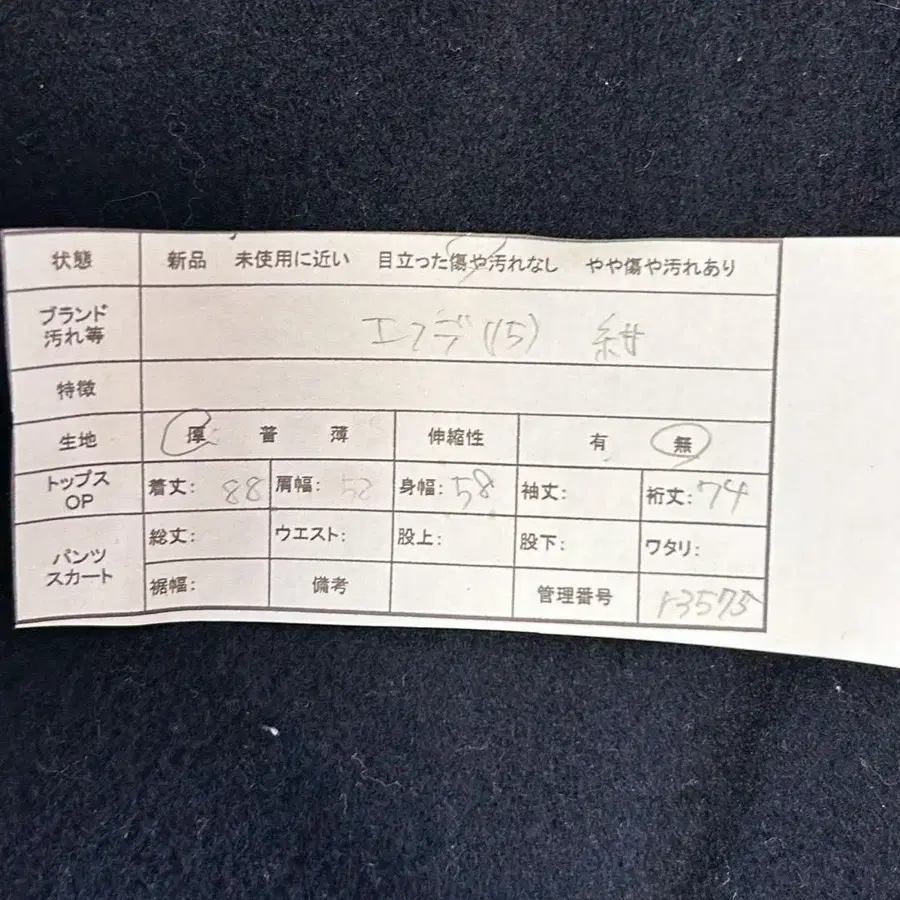 状態 新品 未使用に近い 目立った傷や汚れなし やや傷や汚れあり
ブランド
汚れ等
エフデ(15) 紺
特徴
生地 厚 普 薄 伸縮性 有 無
トップス
OP
着丈: 88 肩幅: 52 身幅: 58 袖丈: 裄丈: 74
パンツ
スカート
総丈: ウエスト: 股上: 股下: ワタリ:
裾幅: 備考 管理番号 r3575